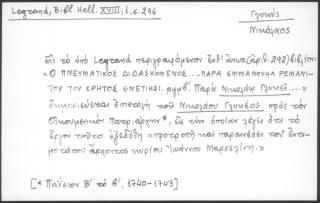 Legrand, Bibl. Hell. XVIII, 1, σ. 296
Γλυκύς
Νικόλαος
Εις το υπό Legrand περιγραφόμενον ενθ' άνωτ. (αρ. 292) βιβλίον:
« Ο ΠΝΕΥΜΑΤΙΚΟΣ ΔΙΔΑΣΚΟΜΕΝΟΣ ... ΠΑΡΑ ΕΜΜΑΝΟΥΗΛ ΡΩΜΑΝΙ-
ΤΟΥ ΤΟΥ ΚΡΗΤΟΣ ΕΝΕΤΙΗΣΙ. αψμβ'. Παρά Νικολάῳ Γλυκεῖ ....»
δημοσιεύεται ἐπιστολή τοῦ Νικολάου Γλυκέος πρός τόν
Οἰκουμενικόν Πατριάρχην*, εἰς τήν ὁποίαν λέγει ὅτι τό
ἔργον τοῦτο ἐξεδόθη «προτροπῇ καί παραινέσει τοῦ ἐντι-
μοτάτου ἄρχοντος κυρίου Ἰωάννου Μαρσελίνη.»
[* Παΐσιον Β' τό Β', 1740-1743]